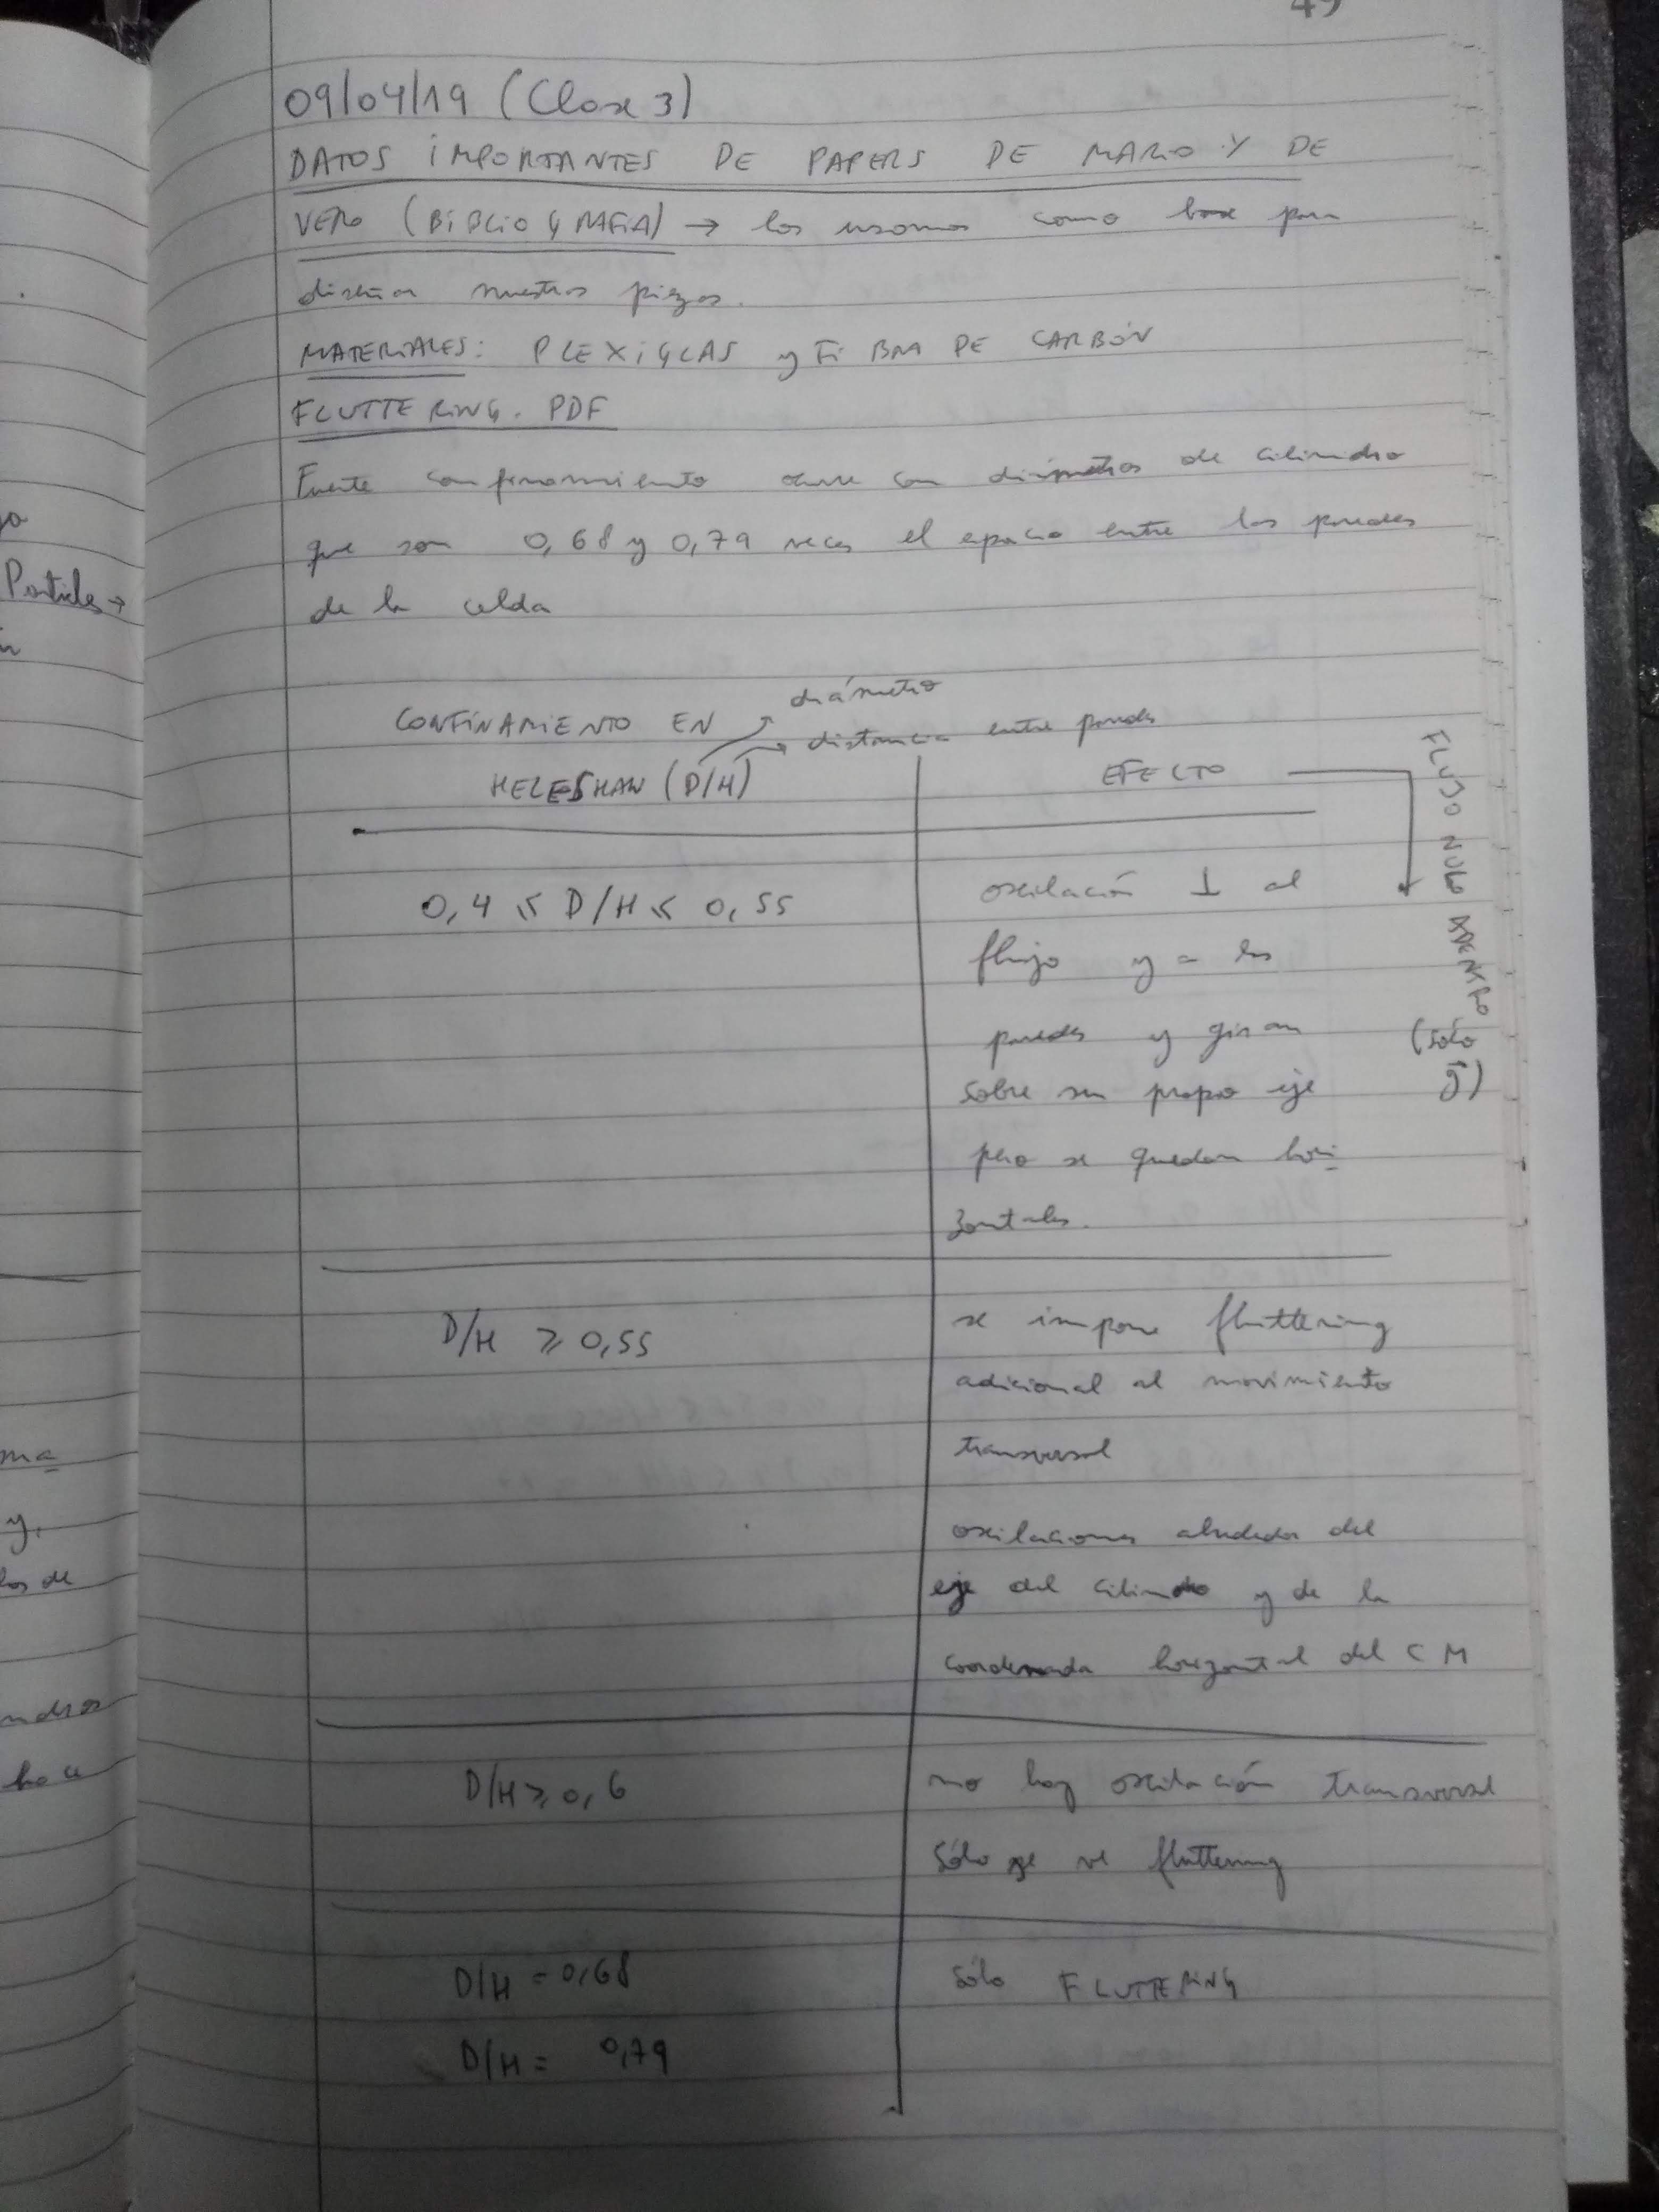 49
09/04/19 (Clase 3)
DATOS IMPORTANTES DE PAPERS DE MARIO Y DE
VERO (BIBLIOGRAFIA) → los usamos como base para
diseñar nuestras piezas.
MATERIALES: PLEXIGLAS y FIBRA DE CARBÓN
FLUTTERING. PDF
Fuerte confinamiento ocurre con diámetros de cilindro
que son 0,68 y 0,79 veces el espacio entre las paredes
de la celda
diámetro
CONFINAMIENTO EN → distancia entre paredes
HELESHAW (D/H) EFECTO
FLUJO NULO ADENTRO
(sólo
g)
0,4 ≤ D/H ≤ 0,55 oscilación ⊥ al
flujo y a las
paredes y giran
sobre su propio eje
pero se quedan hori-
zontales.
D/H ≥ 0,55 se impone fluttering
adicional al movimiento
transversal
oscilaciones alrededor del
eje del cilindro y de la
coordenada horizontal del CM
D/H ≥ 0,6 no hay oscilación transversal
sólo se ve fluttering
D/H = 0,68 sólo FLUTTERING
D/H = 0,79
Particles →
ma
y.
los de
ndros